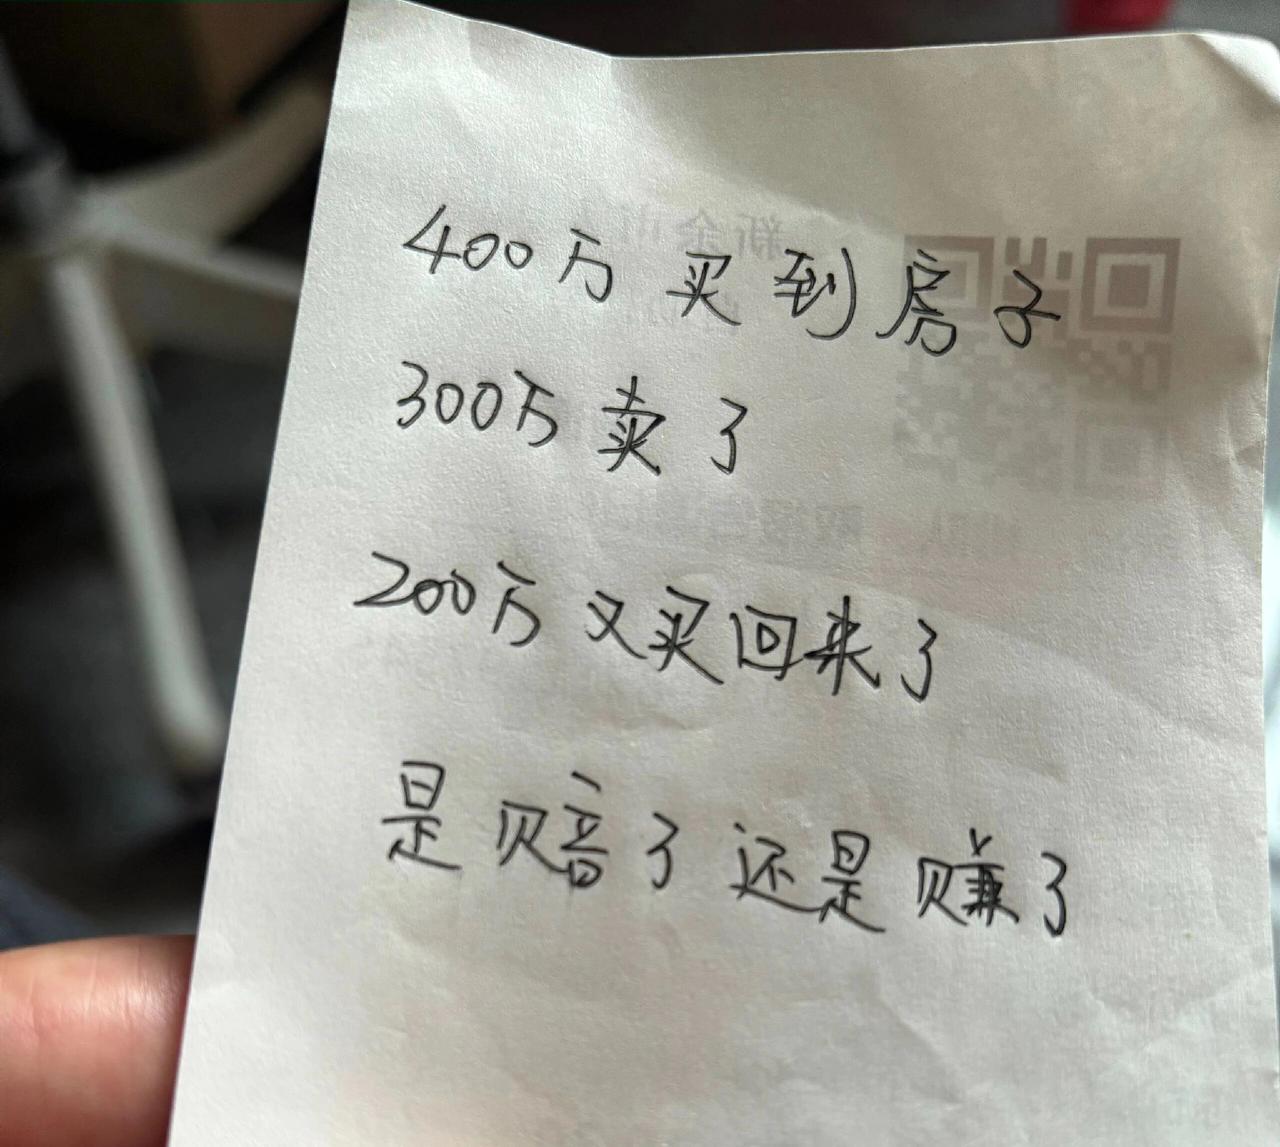 400万买到房子
300万卖了
200万又买回来了
是赔了还是赚了